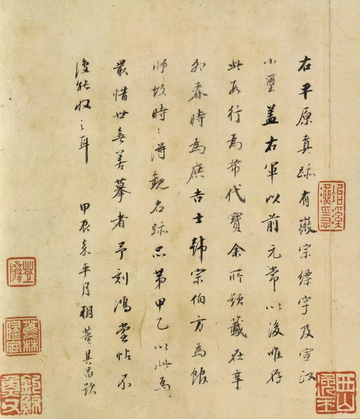 右平原真跡有徽宗標字及宣政
小璽蓋右軍以前元常以後唯存
此數行為希代寶余所題籤在辛
卯春時為庶吉士韓宗伯方為館
師故時〻得觀名跡品第甲乙以此為
最惜世無善摹者予刻鴻堂帖不
復能收之耳 甲辰嘉平月朔董其昌跋